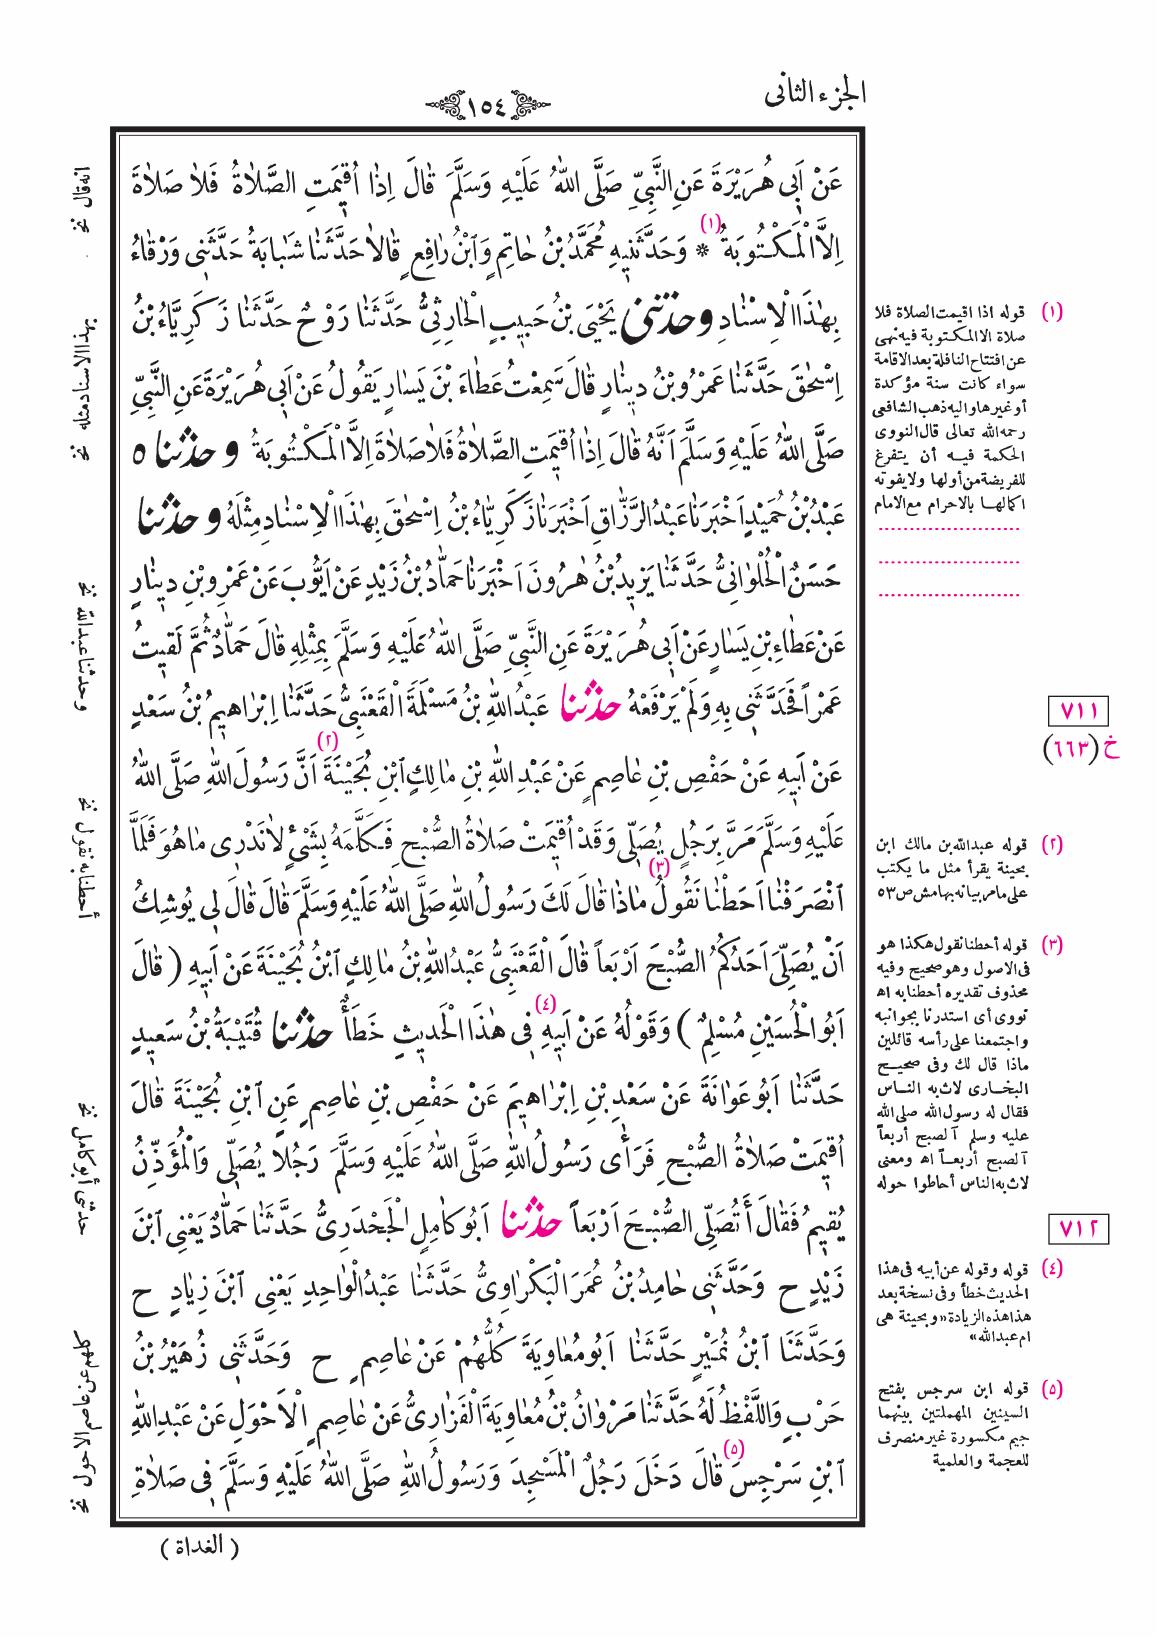 الجزء الثانى
١٥٤
عَنْ اَبِى هُرَيْرَةَ عَنِ النَّبِىِّ صَلَّى اللهُ عَلَيْهِ وَسَلَّمَ قَالَ اِذَا اُقِيمَتِ الصَّلَاةُ فَلَا صَلَاةَ
اِلَّا الْمَكْتُوبَةُ (١) * وَحَدَّثَنِيهِ مُحَمَّدُ بْنُ حَاتِمٍ وَابْنُ رَافِعٍ قَالَا حَدَّثَنَا شَبَابَةُ حَدَّثَنِى وَرْقَاءُ
بِهٰذَا الْاِسْنَادِ وحدثنى يَحْيَى بْنُ حَبِيبٍ الْحَارِثِىُّ حَدَّثَنَا رَوْحٌ حَدَّثَنَا زَكَرِيَّاءُ بْنُ
اِسْحٰقَ حَدَّثَنَا عَمْرُو بْنُ دِينَارٍ قَالَ سَمِعْتُ عَطَاءَ بْنَ يَسَارٍ يَقُولُ عَنْ اَبِى هُرَيْرَةَ عَنِ النَّبِىِّ
صَلَّى اللهُ عَلَيْهِ وَسَلَّمَ اَنَّهُ قَالَ اِذَا اُقِيمَتِ الصَّلَاةُ فَلَا صَلَاةَ اِلَّا الْمَكْتُوبَةُ وحدثنا ه
عَبْدُ بْنُ حُمَيْدٍ اَخْبَرَنَا عَبْدُ الرَّزَّاقِ اَخْبَرَنَا زَكَرِيَّاءُ بْنُ اِسْحٰقَ بِهٰذَا الْاِسْنَادِ مِثْلَهُ وحدثنا
حَسَنٌ الْحُلْوَانِىُّ حَدَّثَنَا يَزِيدُ بْنُ هٰرُونَ اَخْبَرَنَا حَمَّادُ بْنُ زَيْدٍ عَنْ اَيُّوبَ عَنْ عَمْرِو بْنِ دِينَارٍ
عَنْ عَطَاءِ بْنِ يَسَارٍ عَنْ اَبِى هُرَيْرَةَ عَنِ النَّبِىِّ صَلَّى اللهُ عَلَيْهِ وَسَلَّمَ بِمِثْلِهِ قَالَ حَمَّادٌ ثُمَّ لَقِيتُ
عَمْراً فَحَدَّثَنِى بِهِ وَلَمْ يَرْفَعْهُ حدثنا عَبْدُ اللهِ بْنُ مَسْلَمَةَ الْقَعْنَبِىُّ حَدَّثَنَا اِبْرَاهِيمُ بْنُ سَعْدٍ
عَنْ اَبِيهِ عَنْ حَفْصِ بْنِ عَاصِمٍ عَنْ عَبْدِ اللهِ بْنِ مَالِكٍ ابْنِ بُحَيْنَةَ (٢) اَنَّ رَسُولَ اللهِ صَلَّى اللهُ
عَلَيْهِ وَسَلَّمَ مَرَّ بِرَجُلٍ يُصَلِّى وَقَدْ اُقِيمَتْ صَلَاةُ الصُّبْحِ فَكَلَّمَهُ بِشَىْءٍ لَا نَدْرِى مَا هُوَ فَلَمَّا
انْصَرَفْنَا اَحَطْنَا نَقُولُ (٣) مَاذَا قَالَ لَكَ رَسُولُ اللهِ صَلَّى اللهُ عَلَيْهِ وَسَلَّمَ قَالَ قَالَ لِى يُوشِكُ
اَنْ يُصَلِّىَ اَحَدُكُمُ الصُّبْحَ اَرْبَعاً قَالَ الْقَعْنَبِىُّ عَبْدُ اللهِ بْنُ مَالِكٍ ابْنُ بُحَيْنَةَ عَنْ اَبِيهِ ( قَالَ
اَبُو الْحُسَيْنِ مُسْلِمٌ ) وَقَوْلُهُ عَنْ اَبِيهِ (٤) فِى هٰذَا الْحَدِيثِ خَطَأٌ حدثنا قُتَيْبَةُ بْنُ سَعِيدٍ
حَدَّثَنَا اَبُو عَوَانَةَ عَنْ سَعْدِ بْنِ اِبْرَاهِيمَ عَنْ حَفْصِ بْنِ عَاصِمٍ عَنِ ابْنِ بُحَيْنَةَ قَالَ
اُقِيمَتْ صَلَاةُ الصُّبْحِ فَرَأَى رَسُولُ اللهِ صَلَّى اللهُ عَلَيْهِ وَسَلَّمَ رَجُلاً يُصَلِّى وَالْمُؤَذِّنُ
يُقِيمُ فَقَالَ أَتُصَلِّى الصُّبْحَ اَرْبَعاً حدثنا اَبُو كَامِلٍ الْجَحْدَرِىُّ حَدَّثَنَا حَمَّادٌ يَعْنِى ابْنَ
زَيْدٍ ح وَحَدَّثَنِى حَامِدُ بْنُ عُمَرَ الْبَكْرَاوِىُّ حَدَّثَنَا عَبْدُ الْوَاحِدِ يَعْنِى ابْنَ زِيَادٍ ح
وَحَدَّثَنَا ابْنُ نُمَيْرٍ حَدَّثَنَا اَبُو مُعَاوِيَةَ كُلُّهُمْ عَنْ عَاصِمٍ ح وَحَدَّثَنِى زُهَيْرُ بْنُ
حَرْبٍ وَاللَّفْظُ لَهُ حَدَّثَنَا مَرْوَانُ بْنُ مُعَاوِيَةَ الْفَزَارِىُّ عَنْ عَاصِمٍ الْاَحْوَلِ عَنْ عَبْدِ اللهِ
ابْنِ سَرْجِسَ (٥) قَالَ دَخَلَ رَجُلٌ الْمَسْجِدَ وَرَسُولُ اللهِ صَلَّى اللهُ عَلَيْهِ وَسَلَّمَ فِى صَلَاةِ
( الغداة )
(١) قوله اذا اقيمت الصلاة فلا
صلاة الا المكتوبة فيه نهى
عن افتتاح النافلة بعد الاقامة
سواء كانت سنة مؤكدة
أو غيرها واليه ذهب الشافعى
رحمه الله تعالى قال النووى
الحكمة فيه أن يتفرغ
للفريضة من أولها ولا يفوته
اكمالها بالاحرام مع الامام
٧١١
خ (٦٦٣)
(٢) قوله عبدالله بن مالك ابن
بحينة يقرأ مثل ما يكتب
على ما مر بيانه بهامش ص ٥٣
(٣) قوله أحطنا نقول هكذا هو
فى الاصول وهو صحيح وفيه
محذوف تقديره أحطنا به اه
نووى أى استدرنا بجوانبه
واجتمعنا على رأسه قائلين
ماذا قال لك وفى صحيح
البخارى لاث به الناس
فقال له رسول الله صلى الله
عليه وسلم آلصبح أربعاً
آلصبح أربعاً اه ومعنى
لاث به الناس أحاطوا حوله
٧١٢
(٤) قوله وقوله عن أبيه فى هذا
الحديث خطأ وفى نسخة بعد
هذا هذه الزيادة «وبحينة هى
ام عبدالله»
(٥) قوله ابن سرجس بفتح
السينين المهملتين بينهما
جيم مكسورة غير منصرف
للعجمة والعلمية
انه قال نخ
بهذا الاسناد مثله نخ
وحدثنا عبدالله نخ
أحطنا به نقول نخ
حدثنى أبو كامل نخ
كلهم عن عاصم الاحول نخ